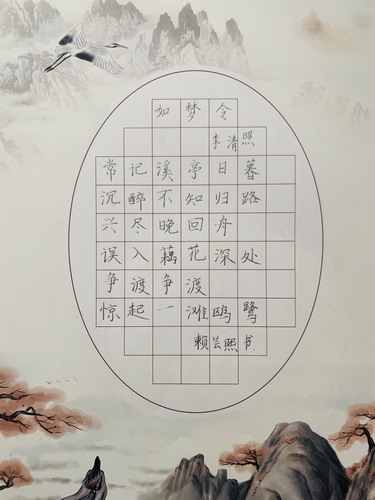 如梦令
李清照
常记溪亭日暮
沉醉不知归路
兴尽晚回舟
误入藕花深处
争渡争渡
惊起一滩鸥鹭
赖芸熙书